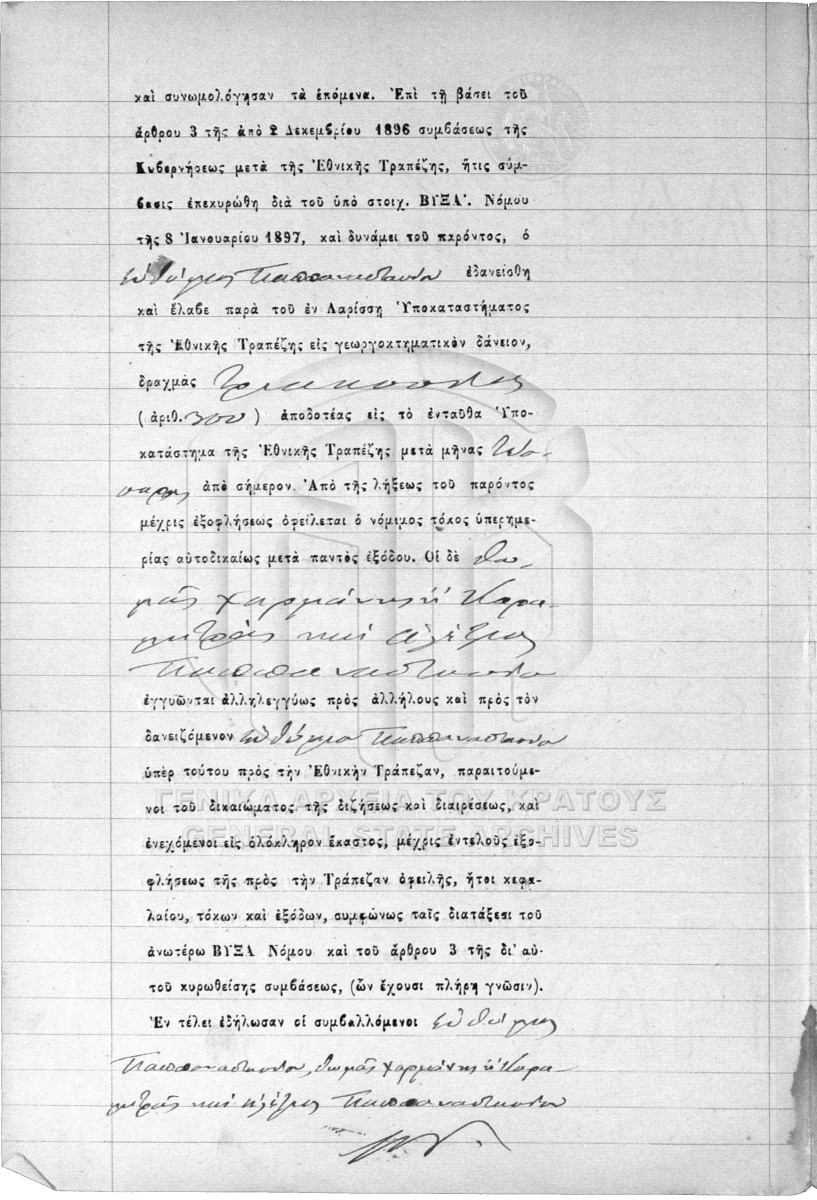 καὶ συνωμολόγησαν τὰ ἑπόμενα. Ἐπὶ τῇ βάσει τοῦ
ἄρθρου 3 τῆς ἀπὸ 2 Δεκεμβρίου 1896 συμβάσεως τῆς
Κυβερνήσεως μετὰ τῆς Ἐθνικῆς Τραπέζης, ἥτις σύμ-
βασις ἐπεκυρώθη διὰ τοῦ ὑπὸ στοιχ. ΒΥΞΑ'. Νόμου
τῆς 8 Ἰανουαρίου 1897, καὶ δυνάμει τοῦ παρόντος, ὁ
Εὐθύμιος Παππαναστασίου ἐδανείσθη
καὶ ἔλαβε παρὰ τοῦ ἐν Λαρίσσῃ Ὑποκαταστήματος
τῆς Ἐθνικῆς Τραπέζης εἰς γεωργοκτηματικὸν δάνειον,
δραχμὰς Τριακοσίας
(ἀριθ. 300) ἀποδοτέας εἰς τὸ ἐνταῦθα Ὑπο-
κατάστημα τῆς Ἐθνικῆς Τραπέζης μετὰ μῆνας
ἀπὸ σήμερον. Ἀπὸ τῆς λήξεως τοῦ παρόντος
μέχρις ἐξοφλήσεως ὀφείλεται ὁ νόμιμος τόκος ὑπερημε-
ρίας αὐτοδικαίως μετὰ παντὸς ἐξόδου. Οἱ δὲ Θω-
μᾶς Χαρμάνης ἢ Καρα-
μητρᾶς καὶ
Παππαναστασίου
ἐγγυῶνται ἀλληλεγγύως πρὸς ἀλλήλους καὶ πρὸς τὸν
δανειζόμενον Εὐθύμιον Παππαναστασίου
ὑπὲρ τούτου πρὸς τὴν Ἐθνικὴν Τράπεζαν, παραιτούμε-
νοι τοῦ δικαιώματος τῆς διζήσεως καὶ διαιρέσεως, καὶ
ΓΕΝΙΚΑ ΑΡΧΕΙΑ ΤΟΥ ΚΡΑΤΟΥΣ
GENERAL STATE ARCHIVES
ἐνεχόμενοι εἰς ὁλόκληρον ἕκαστος, μέχρις ἐντελοῦς ἐξο-
φλήσεως τῆς πρὸς τὴν Τράπεζαν ὀφειλῆς, ἤτοι κεφα-
λαίου, τόκων καὶ ἐξόδων, συμφώνως ταῖς διατάξεσι τοῦ
ἀνωτέρω ΒΥΞΑ Νόμου καὶ τοῦ ἄρθρου 3 τῆς δι' αὐ-
τοῦ κυρωθείσης συμβάσεως, (ὧν ἔχουσι πλήρη γνῶσιν).
Ἐν τέλει ἐδήλωσαν οἱ συμβαλλόμενοι Εὐθύμιος
Παππαναστασίου, Θωμᾶς Χαρμάνης ἢ Καρα-
μητρᾶς καὶ Παππαναστασίου